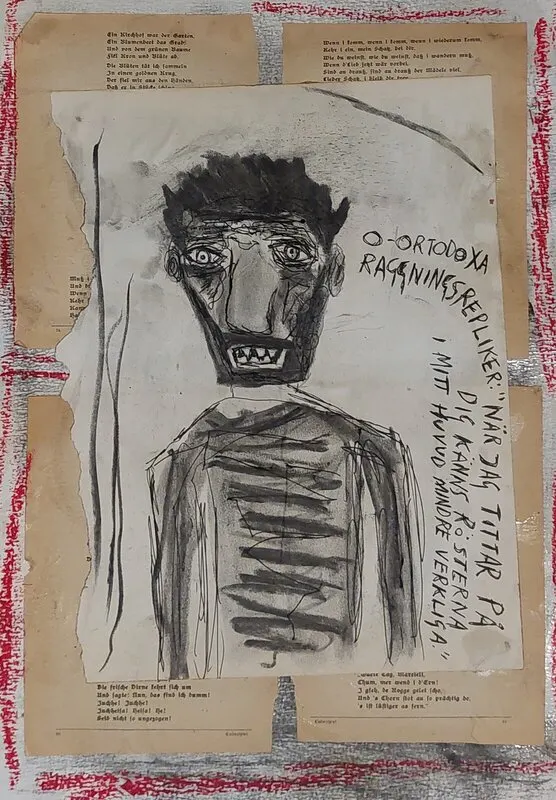 Ein Kirchhof war der Garten,
Ein Blumenbeet das Grab,
Und von dem grünen Baume
Fiel Kron und Blüte ab.
Die Blüten tät ich sammeln
In einen goldnen Krug,
Der fiel mir aus den Händen,
Daß er in Stücke schlug
Wenn i komm, wenn i komm, wenn i wiederum komm,
Kehr i ein, mein Schatz, bei dir.
Wie du weinst, wie du weinst, daß i wandern muß,
Wenn d'Lieb jetzt wär vorbei.
Sind au drauß, sind au drauß der Mädele viel,
Lieber Schatz, i bleib dir treu.
O-ORTODOXA
RAGGNINGSREPLIKER: "NÄR JAG TITTAR PÅ
DIG KÄNNS RÖSTERNA
I MITT HUVUD MINDRE VERKLIGA"
Muß i
Und d
Wenn
Kehr
Kann
Die frische Dirne kehrt sich um
Und sagte: Nun, das find ich dumm!
Juchhe! Juchhe!
Juchheisa! Heisa! He!
Seid nicht so ungezogen!
Chum, mer wend i d'Ern!
I gseh, de Rogge
's ist lüstiger as fern.